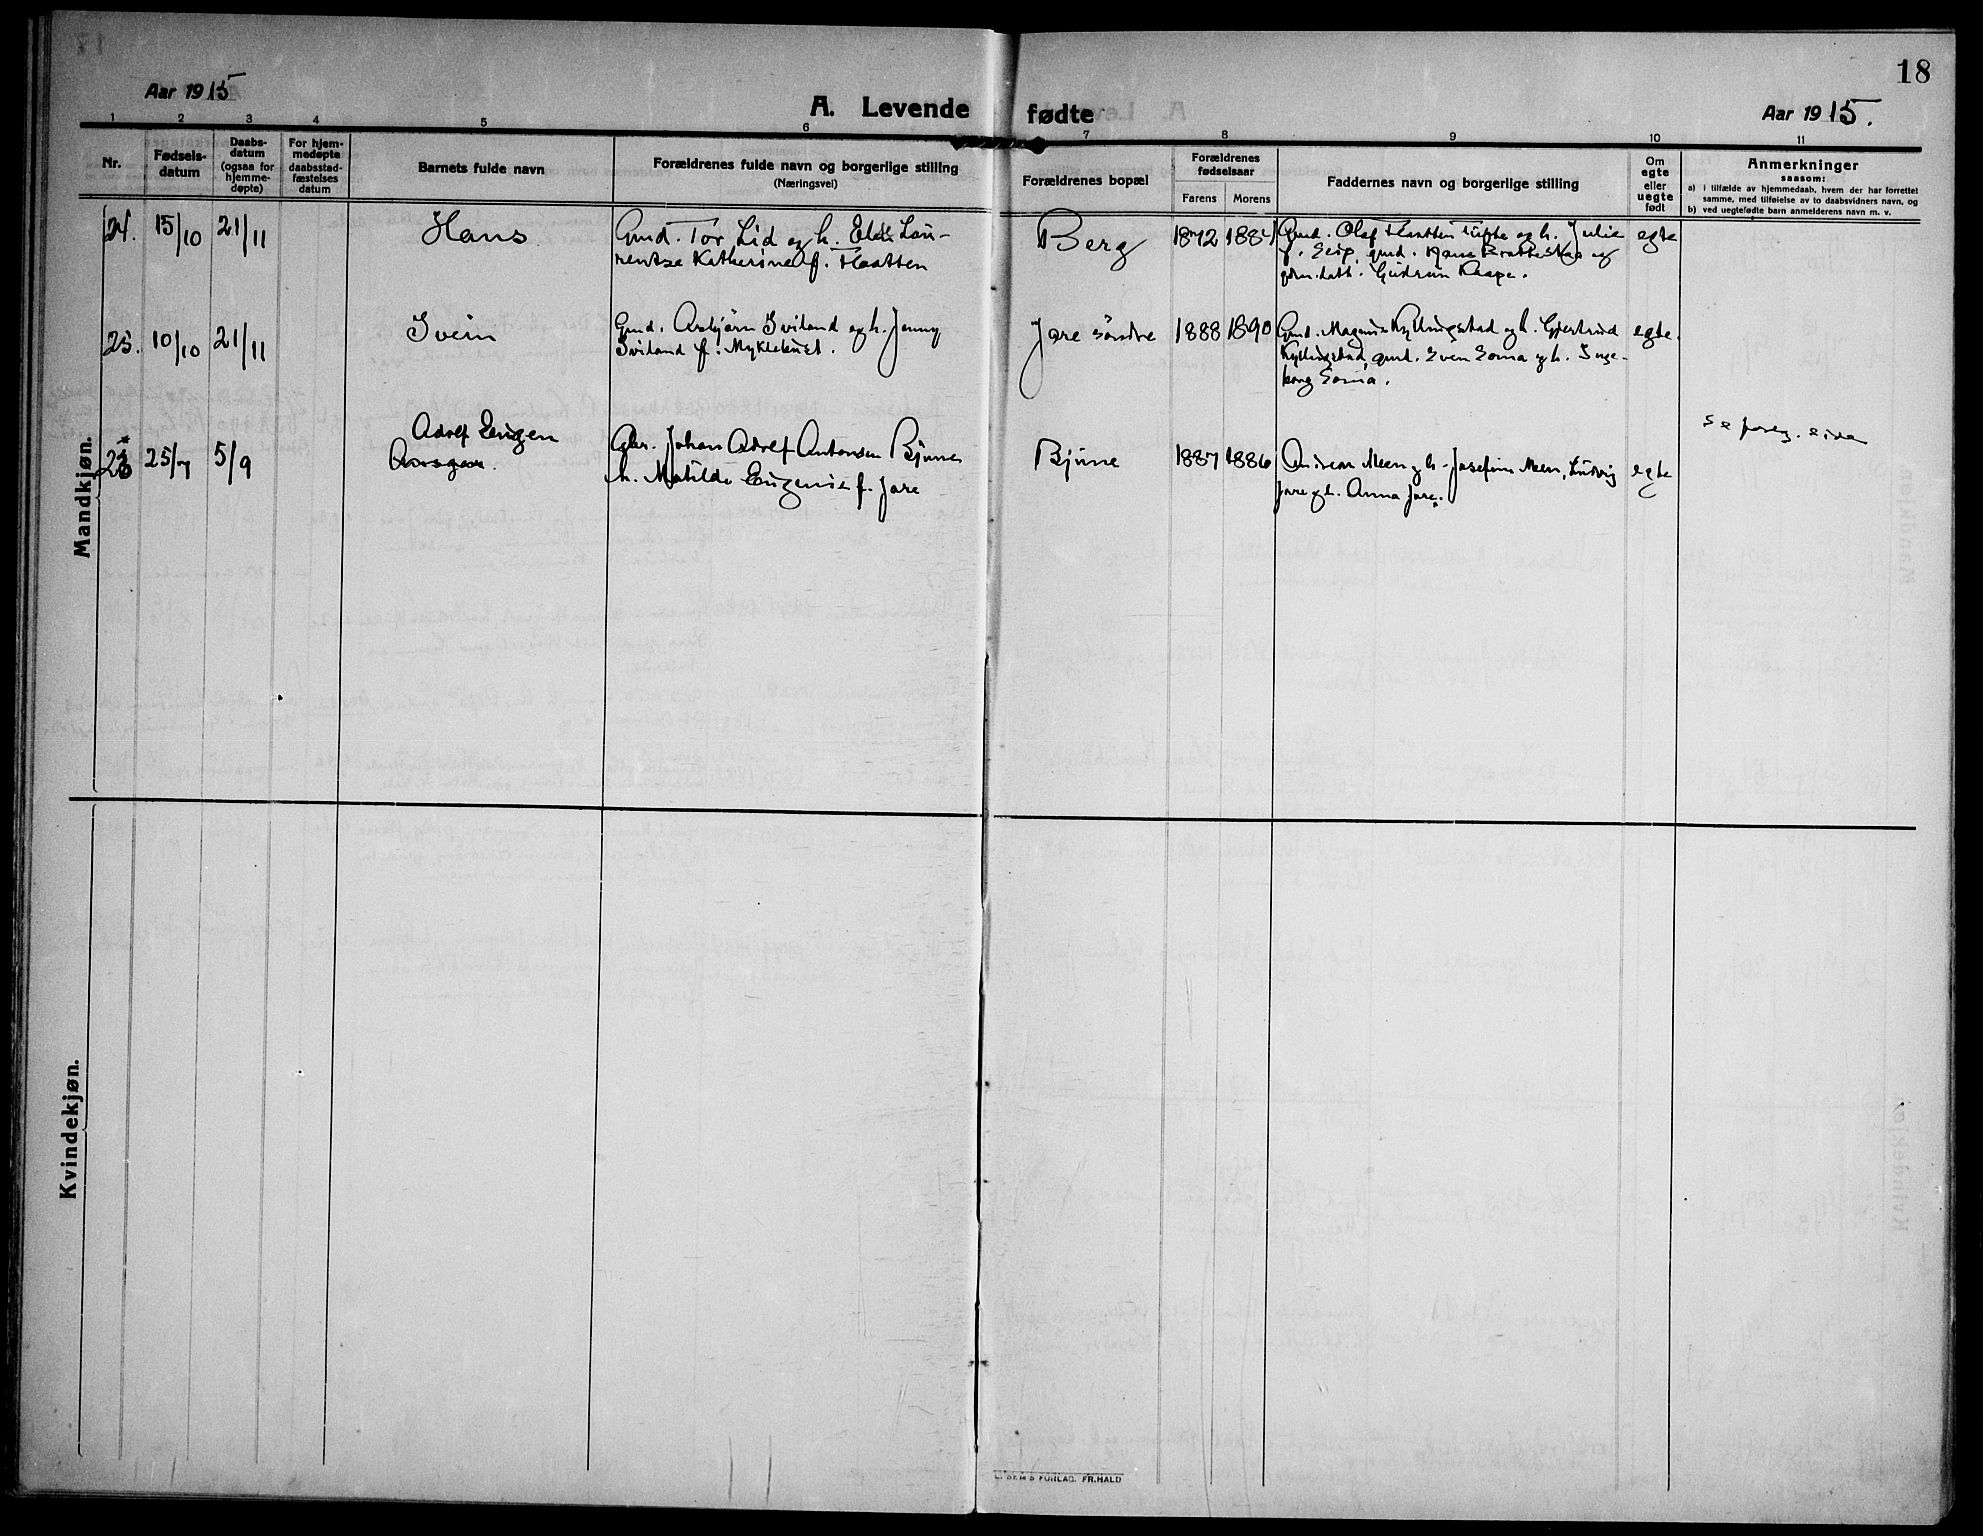 18
Aar 1915
A. Levende fødte
Aar 1915.
1 2 3 4 5 6 7 8 9 10 11
Nr.
Fødsels-
datum
Daabs-
datum
(ogsaa for
hjemme-
døpte)
For hjem-
medøpte
daabsstad-
fæstelses
datum
Barnets fulde navn
Forældrenes fulde navn og borgerlige stilling
(Næringsvei)
Forældrenes bopæl
Forældrenes
fødselsaar
Farens Morens
Faddernes navn og borgerlige stilling
Om
egte
eller
uegte
født
Anmerkninger
saasom:
a) i tilfælde av hjemmedaab, hvem der har forrettet
samme, med tilføielse av to daabsvidners navn, og
b) ved uegtefødte barn anmelderens navn m. v.
Mandkjøn.
24. 15/10 21/11 Hans
Gmd. Tor Lid og h. Lau-
rentze Katherine f. Haatten
Berg
1872
Gmd. Olaf Haatten Tufte og h. Julie
f. gmd. og
Gudrun Kaape.
egte
25. 10/10 21/11 Svein
Gmd. Asbjørn Sviland og h. Jenny
Sviland f. Myklebust.
Jare søndre
1888 1890
Gmd. Magnus Kyllingstad og h. Gjertrud
Kyllingstad, gmd. Sven Soma og h. Inge-
borg Soma.
egte.
26 25/7 5/9
Adolf Eugen
Ansgar.
Gbr. Johan Adolf Antonsen Bjune
h. Matilde Eugenie f. Jare
Bjune
1887 1886
Andreas Meen og h. Josefine Meen, Ludvig
Jare og h. Anna Jare.
egte
se foreg. side
Kvindekjøn.
E. SEM'S FORLAG. FR.HALD